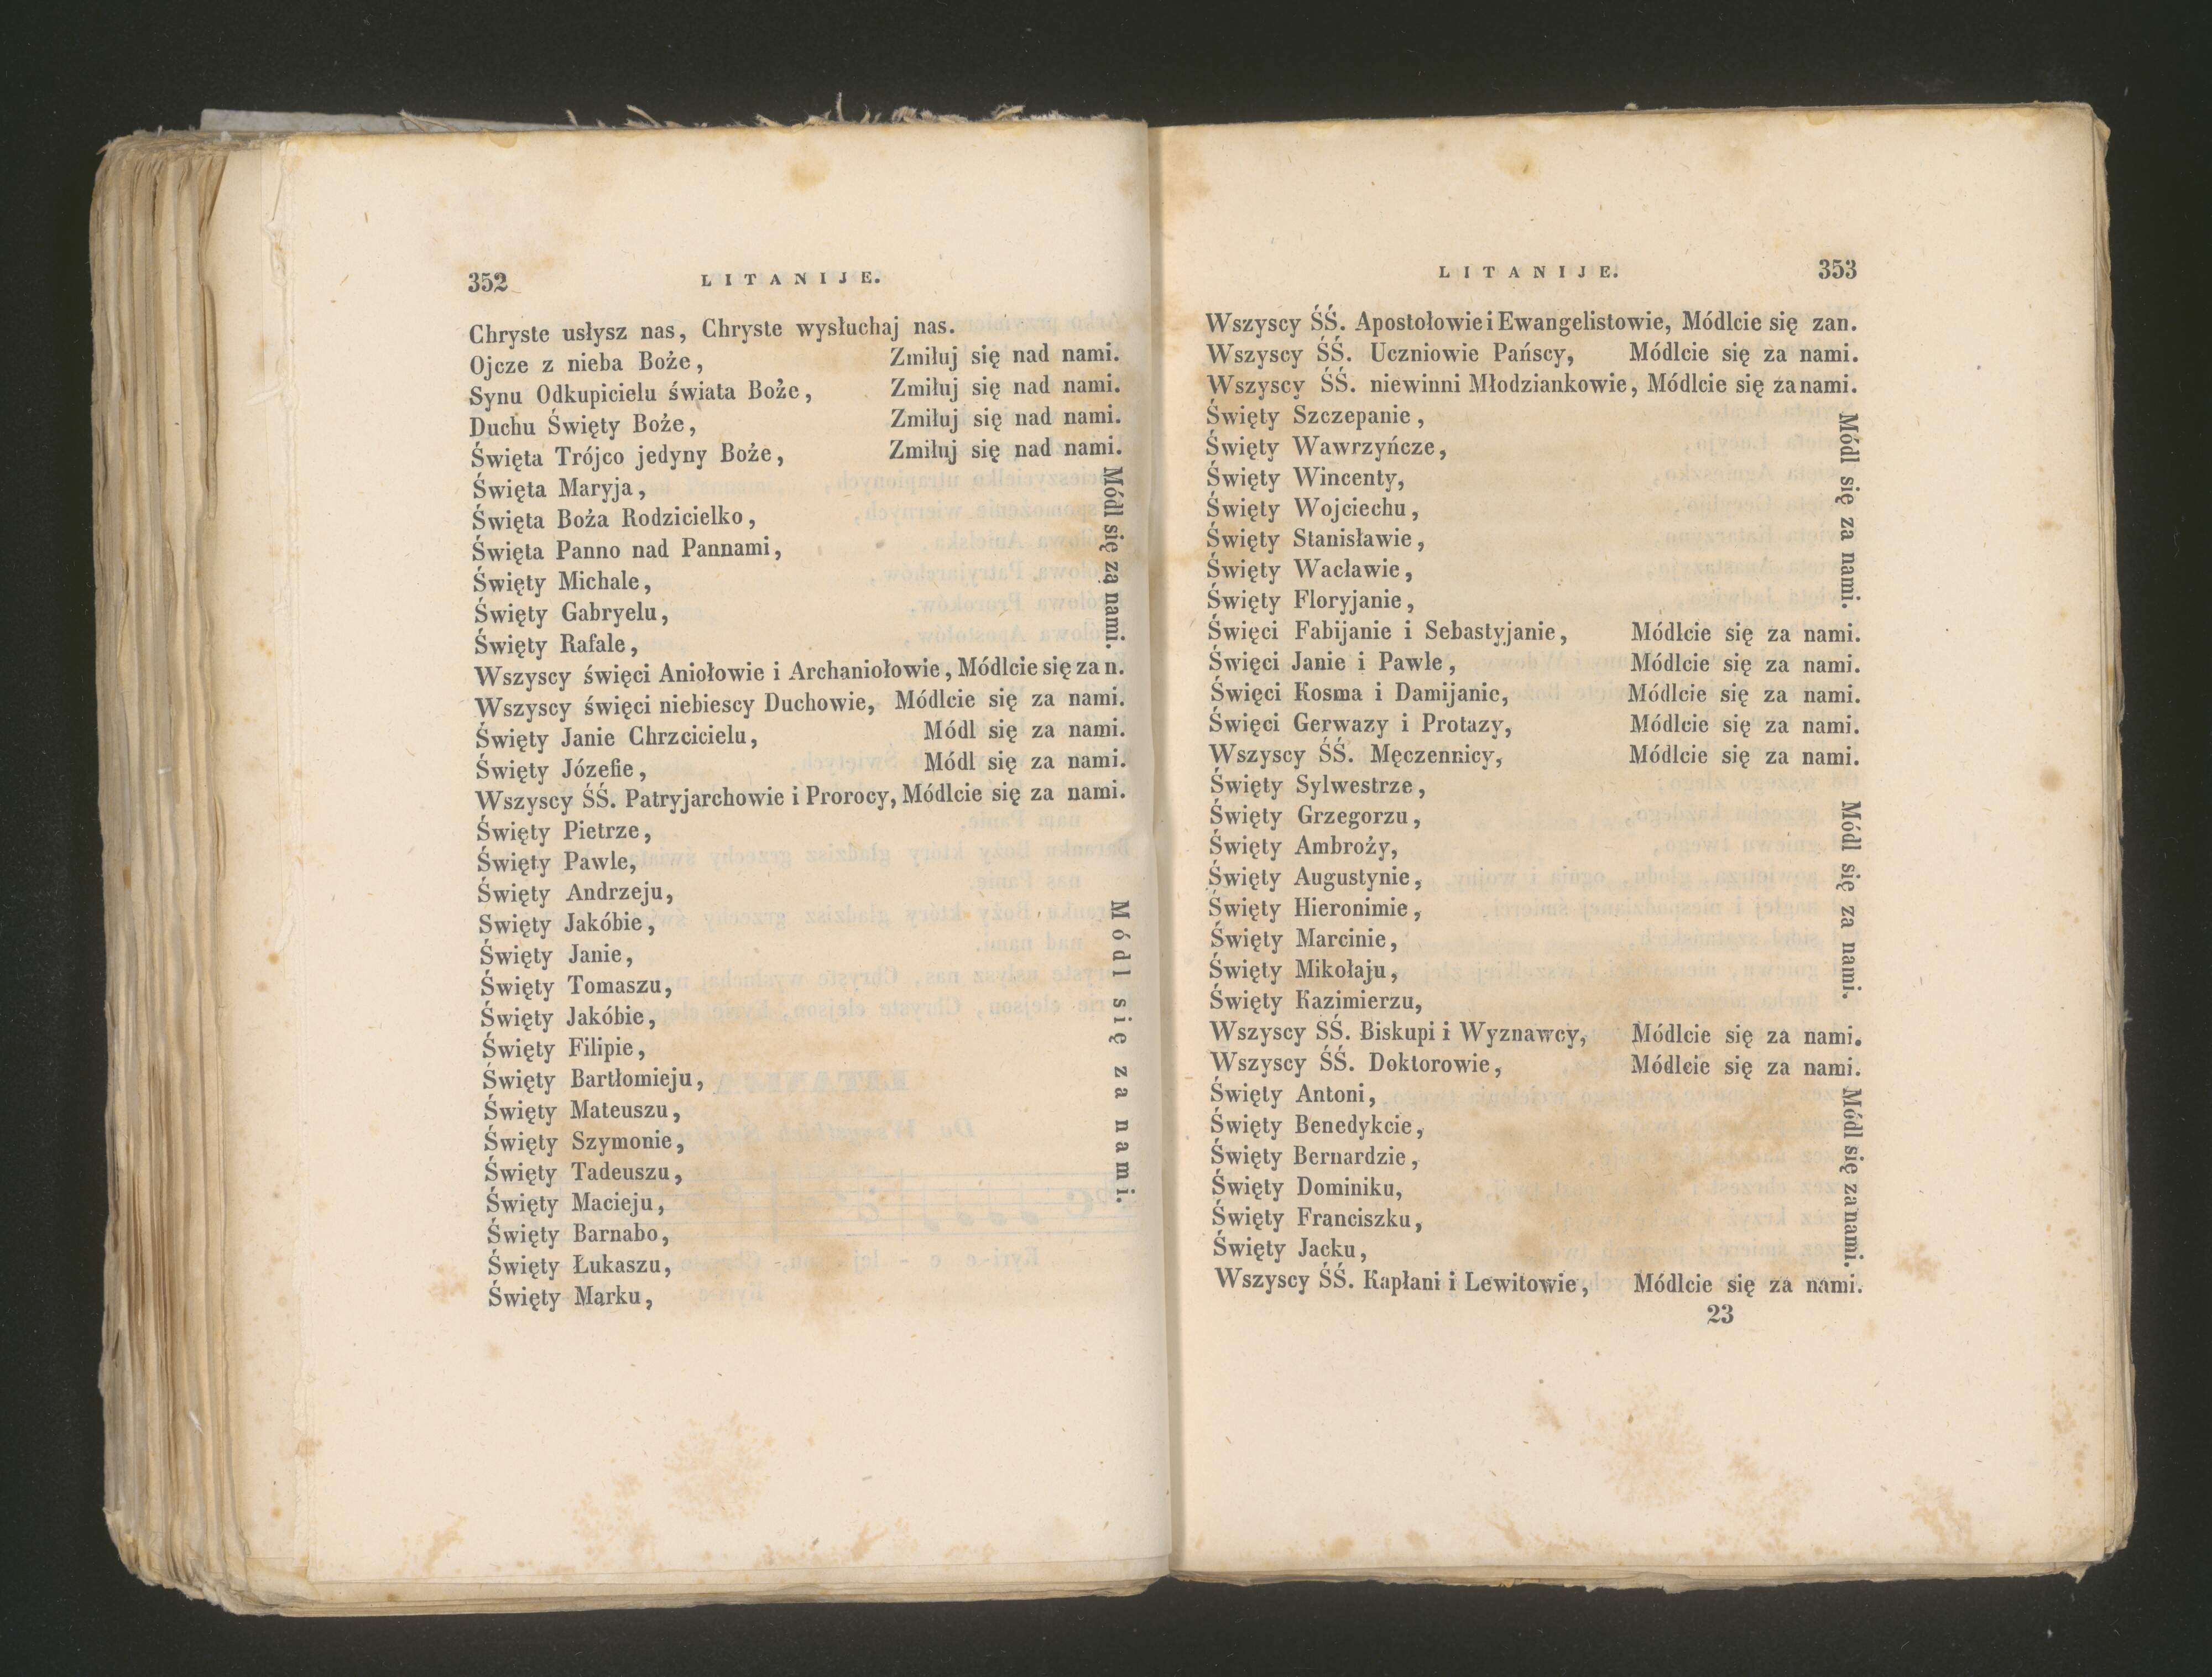 352 LITANIJE.
Chryste usłysz nas, Chryste wysłuchaj nas.
Ojcze z nieba Boże, Zmiłuj się nad nami.
Synu Odkupicielu świata Boże, Zmiłuj się nad nami.
Duchu Święty Boże, Zmiłuj się nad nami.
Święta Trójco jedyny Boże, Zmiłuj się nad nami.
Święta Maryja,
Święta Boża Rodzicielko,
Święta Panno nad Pannami,
Święty Michale,
Święty Gabryelu,
Święty Rafale,
Módl się za nami.
Wszyscy święci Aniołowie i Archaniołowie, Módlcie się za n.
Wszyscy święci niebiescy Duchowie, Módlcie się za nami.
Święty Janie Chrzcicielu, Módl się za nami.
Święty Józefie, Módl się za nami.
Wszyscy ŚŚ. Patryjarchowie i Prorocy, Módlcie się za nami.
Święty Pietrze,
Święty Pawle,
Święty Andrzeju,
Swięty Jakóbie,
Święty Janie,
Święty Tomaszu,
Święty Jakóbie,
Święty Filipie,
Święty Bartłomieju,
Święty Mateuszu,
Święty Szymonie,
Święty Tadeuszu,
Święty Macieju,
Święty Barnabo,
Święty Łukaszu,
Święty Marku,
Módl się za nami.
LITANIJE. 353
Wszyscy ŚŚ. Apostołowie i Ewangelistowie, Módlcie się za n.
Wszyscy ŚŚ. Uczniowie Pańscy, Módlcie się za nami.
Wszyscy ŚŚ. niewinni Młodziankowie, Módlcie się za nami.
Święty Szczepanie,
Święty Wawrzyńcze,
Święty Wincenty,
Święty Wojciechu,
Święty Stanisławie,
Święty Wacławie,
Święty Floryjanie,
Módl się za nami.
Święci Fabijanie i Sebastyjanie, Módlcie się za nami.
Święci Janie i Pawle, Módlcie się za nami.
Święci Kosma i Damijanie, Módlcie się za nami.
Święci Gerwazy i Protazy, Módlcie się za nami.
Wszyscy ŚŚ. Męczennicy, Módlcie się za nami.
Święty Sylwestrze,
Święty Grzegorzu,
Święty Ambroży,
Święty Augustynie,
Święty Hieronimie,
Święty Marcinie,
Święty Mikołaju,
Święty Kazimierzu,
Módl się za nami.
Wszyscy ŚŚ. Biskupi i Wyznawcy, Módlcie się za nami.
Wszyscy ŚŚ. Doktorowie, Módlcie się za nami.
Święty Antoni,
Święty Benedykcie,
Święty Bernardzie,
Święty Dominiku,
Święty Franciszku,
Święty Jacku,
Módl się za nami.
Wszyscy ŚŚ. Kapłani i Lewitowie, Módlcie się za nami.
23